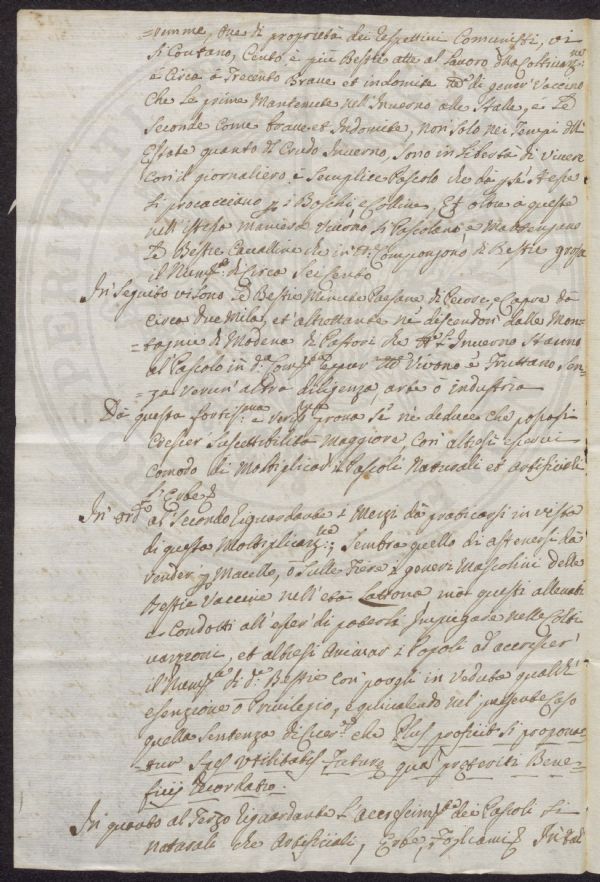 =remme, ove di proprietà dei respettivi Comunisti, vi
si Contano, Cento, e più Bestie atte al lavoro d:ta Coltivaz:ne
e Circa à Trecento Brave et indomite d:e di gener' Vaccino
che le prime Mantenute nell'Inverno alle Stalle, e Le
Seconde come brave et Indomite, non Solo nei Tempi dell'
Estate quanto il Crudo Inverno, sono in Libertà di Vivere
con il giornaliero, e Semplice Pascolo che da se stesse
si procacciano p i Boschi e Colline, Et oltre a queste
nell'istessa maniera Vivono si Pascolano e Mantengono
Le Bestie Cavalline che in tt: Compongono di Bestie grosse
il Num:o di Circa Sei Cento
In Seguito vi sono Le Bestie Minute Paesane di Pecore, e Capre da
Circa due Mila, et altrettante ne discendon' dalle Mon-
=tagne di Modena di Pastori che L' Inverno Stanno
al Pascolo in d:a Vivono e Fruttano, sen-
=za verun' altra diligenza, arte ò industria
Da questa fortissima e vera prova se ne deduce che possasi
Creder' Suscettibilità Maggiore, con' altresi esservi
Comodo di Moltiplicar' i Pascoli Naturali et Artificiali
l'Erbe
In ord:e al Secondo riguardante i Mezzi da praticarsi in vista
di questa Moltiplicaz:ne Sembra quello di astenersi da
vender' p Macello, ò sulle Fiere i generi Mascolini delle
Bestie Vaccine nell'età Lattona ma questi allevati
e Condotti all'esser' di poterli Impiegare nelle Colti
vazzioni, et altresi Animar' i Popoli ad accrescer'
il Num:o di d:e Bestie con porgli in Veduta qualche
esenzione o Privilegio, equivalendo nel presente Caso
quella Sentenza di Cicer:e che Plus proficit si propona=
tur Spes utilitatis Future quam preteriti Bene=
ficij recordatio.
In quanto al Terzo riguardante l'accrescim:to dei Pascoli si
naturali che Artificiali, Erbe, Fogliami